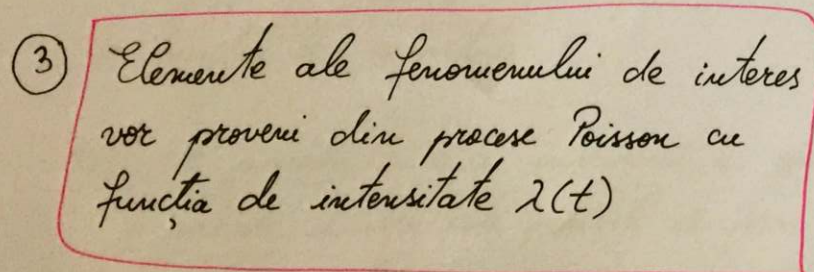 3 Elemente ale fenomenului de interes
vor proveni din procese Poisson cu
funcția de intensitate λ(t)